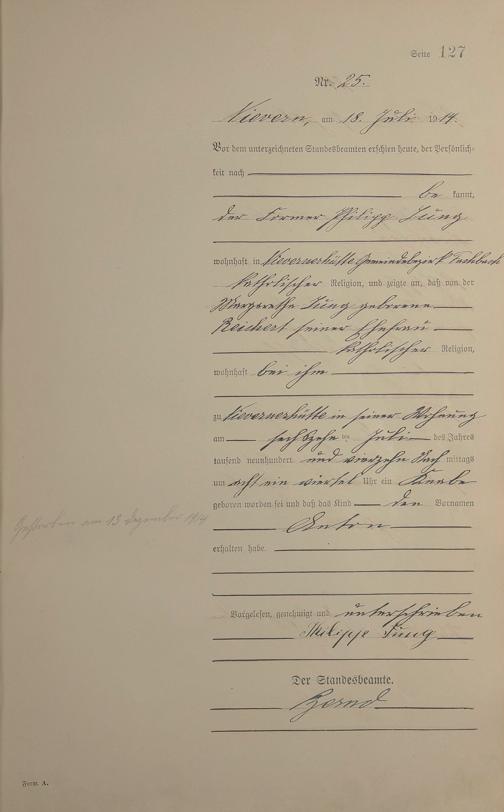 Seite 127
Nr. 25.
Nievern, am 18. Juli 1914.
Vor dem unterzeichneten Standesbeamten erschien heute, der Persönlich-
keit nach
be kannt,
der Former Philipp Jung
wohnhaft in Nievernerhütte Gemeindebezirk Fachbach
katholischer Religion, und zeigte an, daß von der
Margarethe Jung geborene
Reichert seiner Ehefrau
katholischer Religion,
wohnhaft bei ihm
zu Nievernerhütte in seiner Wohnung
am sechszehn ten Juli des Jahres
tausend neunhundert und vierzehn Nach mittags
um acht ein viertel Uhr ein Knabe
geboren worden sei und daß das Kind den Vornamen
Anton
erhalten habe.
Gestorben am 13 Dezember 1914
Vorgelesen, genehmigt und unterschrieben
Philipp Jung
Der Standesbeamte.
Form A.